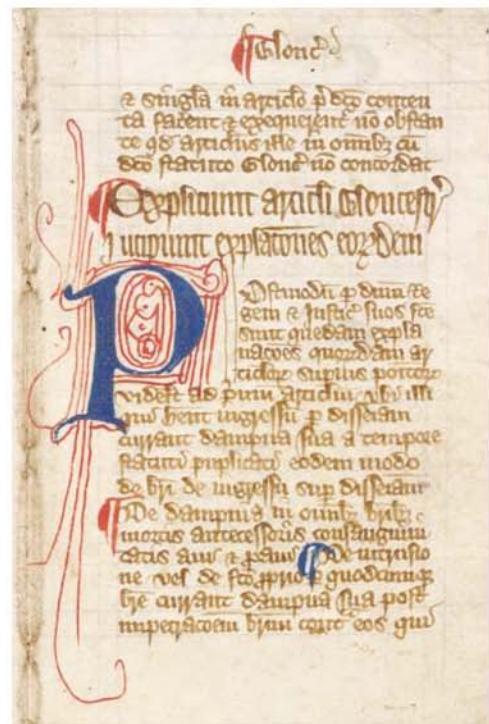 Glouc̄
& singła in articło p̄ dc̄o conten
ta facent & exequerent᷑ nō obstan
te qd̄ articlus ille in omībꝫ cū
dc̄o statuto Glouc̄ nō concordat
Expliciunt articłi Gloucestr̄
incipiunt expłac̄ones eorꝝdem
Postmodū p dn̄m Re
gem & Justic̄ suos fc̄e
sunt quedam expla
nac̄ōes quorꝝdam ar
ticlorꝝ supius positorꝝ
videlt᷑ ad p̄mū articlū vbi illi
qui hent ingressū p disseisam
currant dampna sua a tempore
statuti puplicati eodem modo
de br̄i de ingressu sup disseisam
De dampnis in omībꝫ br̄ibꝫ
mortis antecessoris consanguini
tatis aui & p̱aui De intrusio
ne vel de fc̄o ꝓprio p quodcumqꝫ
br̄e currant dampna sua post
impetrac̄oem br̄ium cont᷑ eos qui